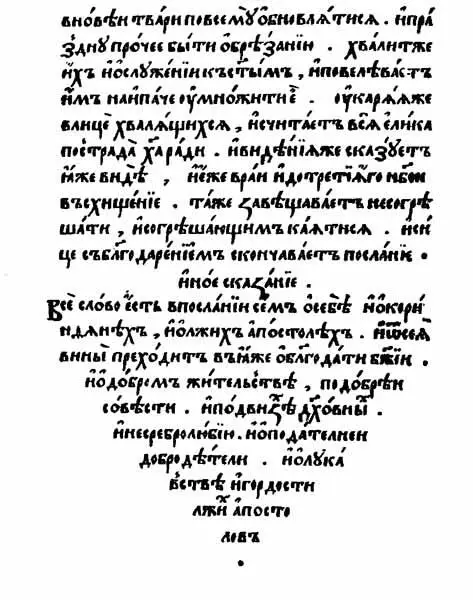 вновѣй твари повсемꙋ ѡбновлѧтисѧ . и҆пра
зднꙋ прочее быти ѡ҆брѣзанїю . хвалитже
и҆хъ и҆ѡслꙋженїи къст҃ымъ , и҆повелѣваетъ
и҆мъ наипаче оу҆множити є҆ . оу҆карѧѧже
влицѣ хвалѧщихсѧ , и҆считаетъ всѧ е҆лика
пострада х҃а ради . и҆видѣнїѧже сказꙋетъ
ꙗ҆же видѣ , и҆є҆же вран идотретїѧго нб҃си
въсхищенїе . таже завѣщаваетъ несогрѣ
шати , и҆согрѣшающимъ каѧтисѧ . иси
це съблагодаренїемъ скончаваетъ посланїе .
и҆ное сказанїе .
Все слово е҆сть впосланїи семъ ѡ҆себѣ и҆ѡкори
нѳѧнѣхъ , и҆ѡлжихъ а҆постолѣхъ . и҆ѿсеѧ
вины преходитъ въꙗ҆же ѡ҆благодати бж҃їи .
и҆ѡдобромъ жительствѣ , подобрѣи
совѣсти . и҆подвизѣ дх҃овнѣ .
и҆несребролюбїи . и҆ѡподателнеи
добродѣтели . и҆ѡлꙋка
вствѣ и҆гордости
лжи а҆посто
ловъ